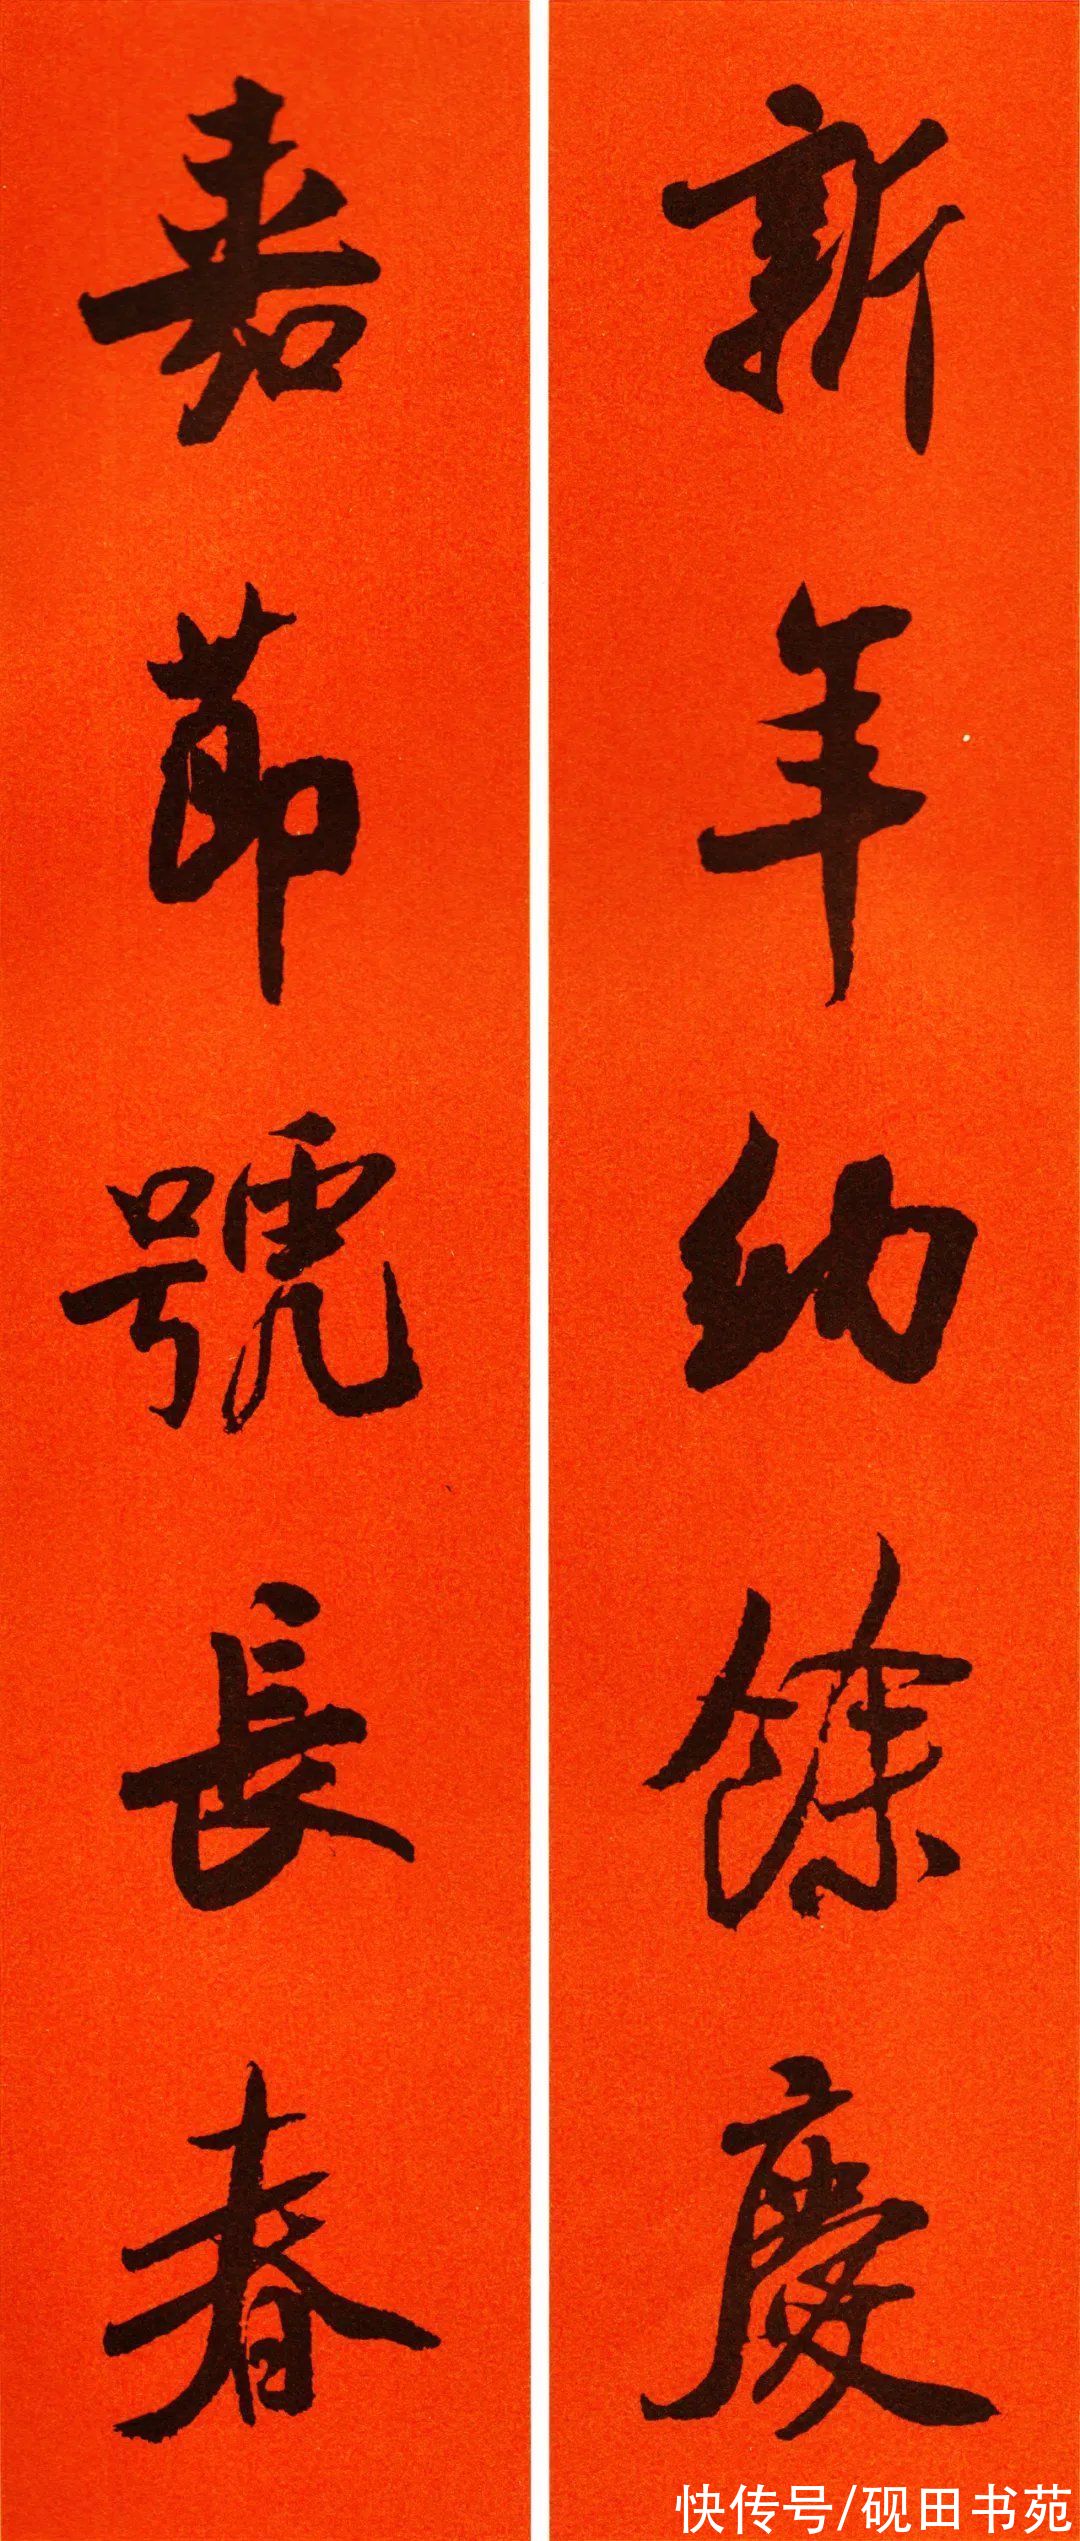 新年納餘慶
嘉節號長春
快传号/砚田书苑